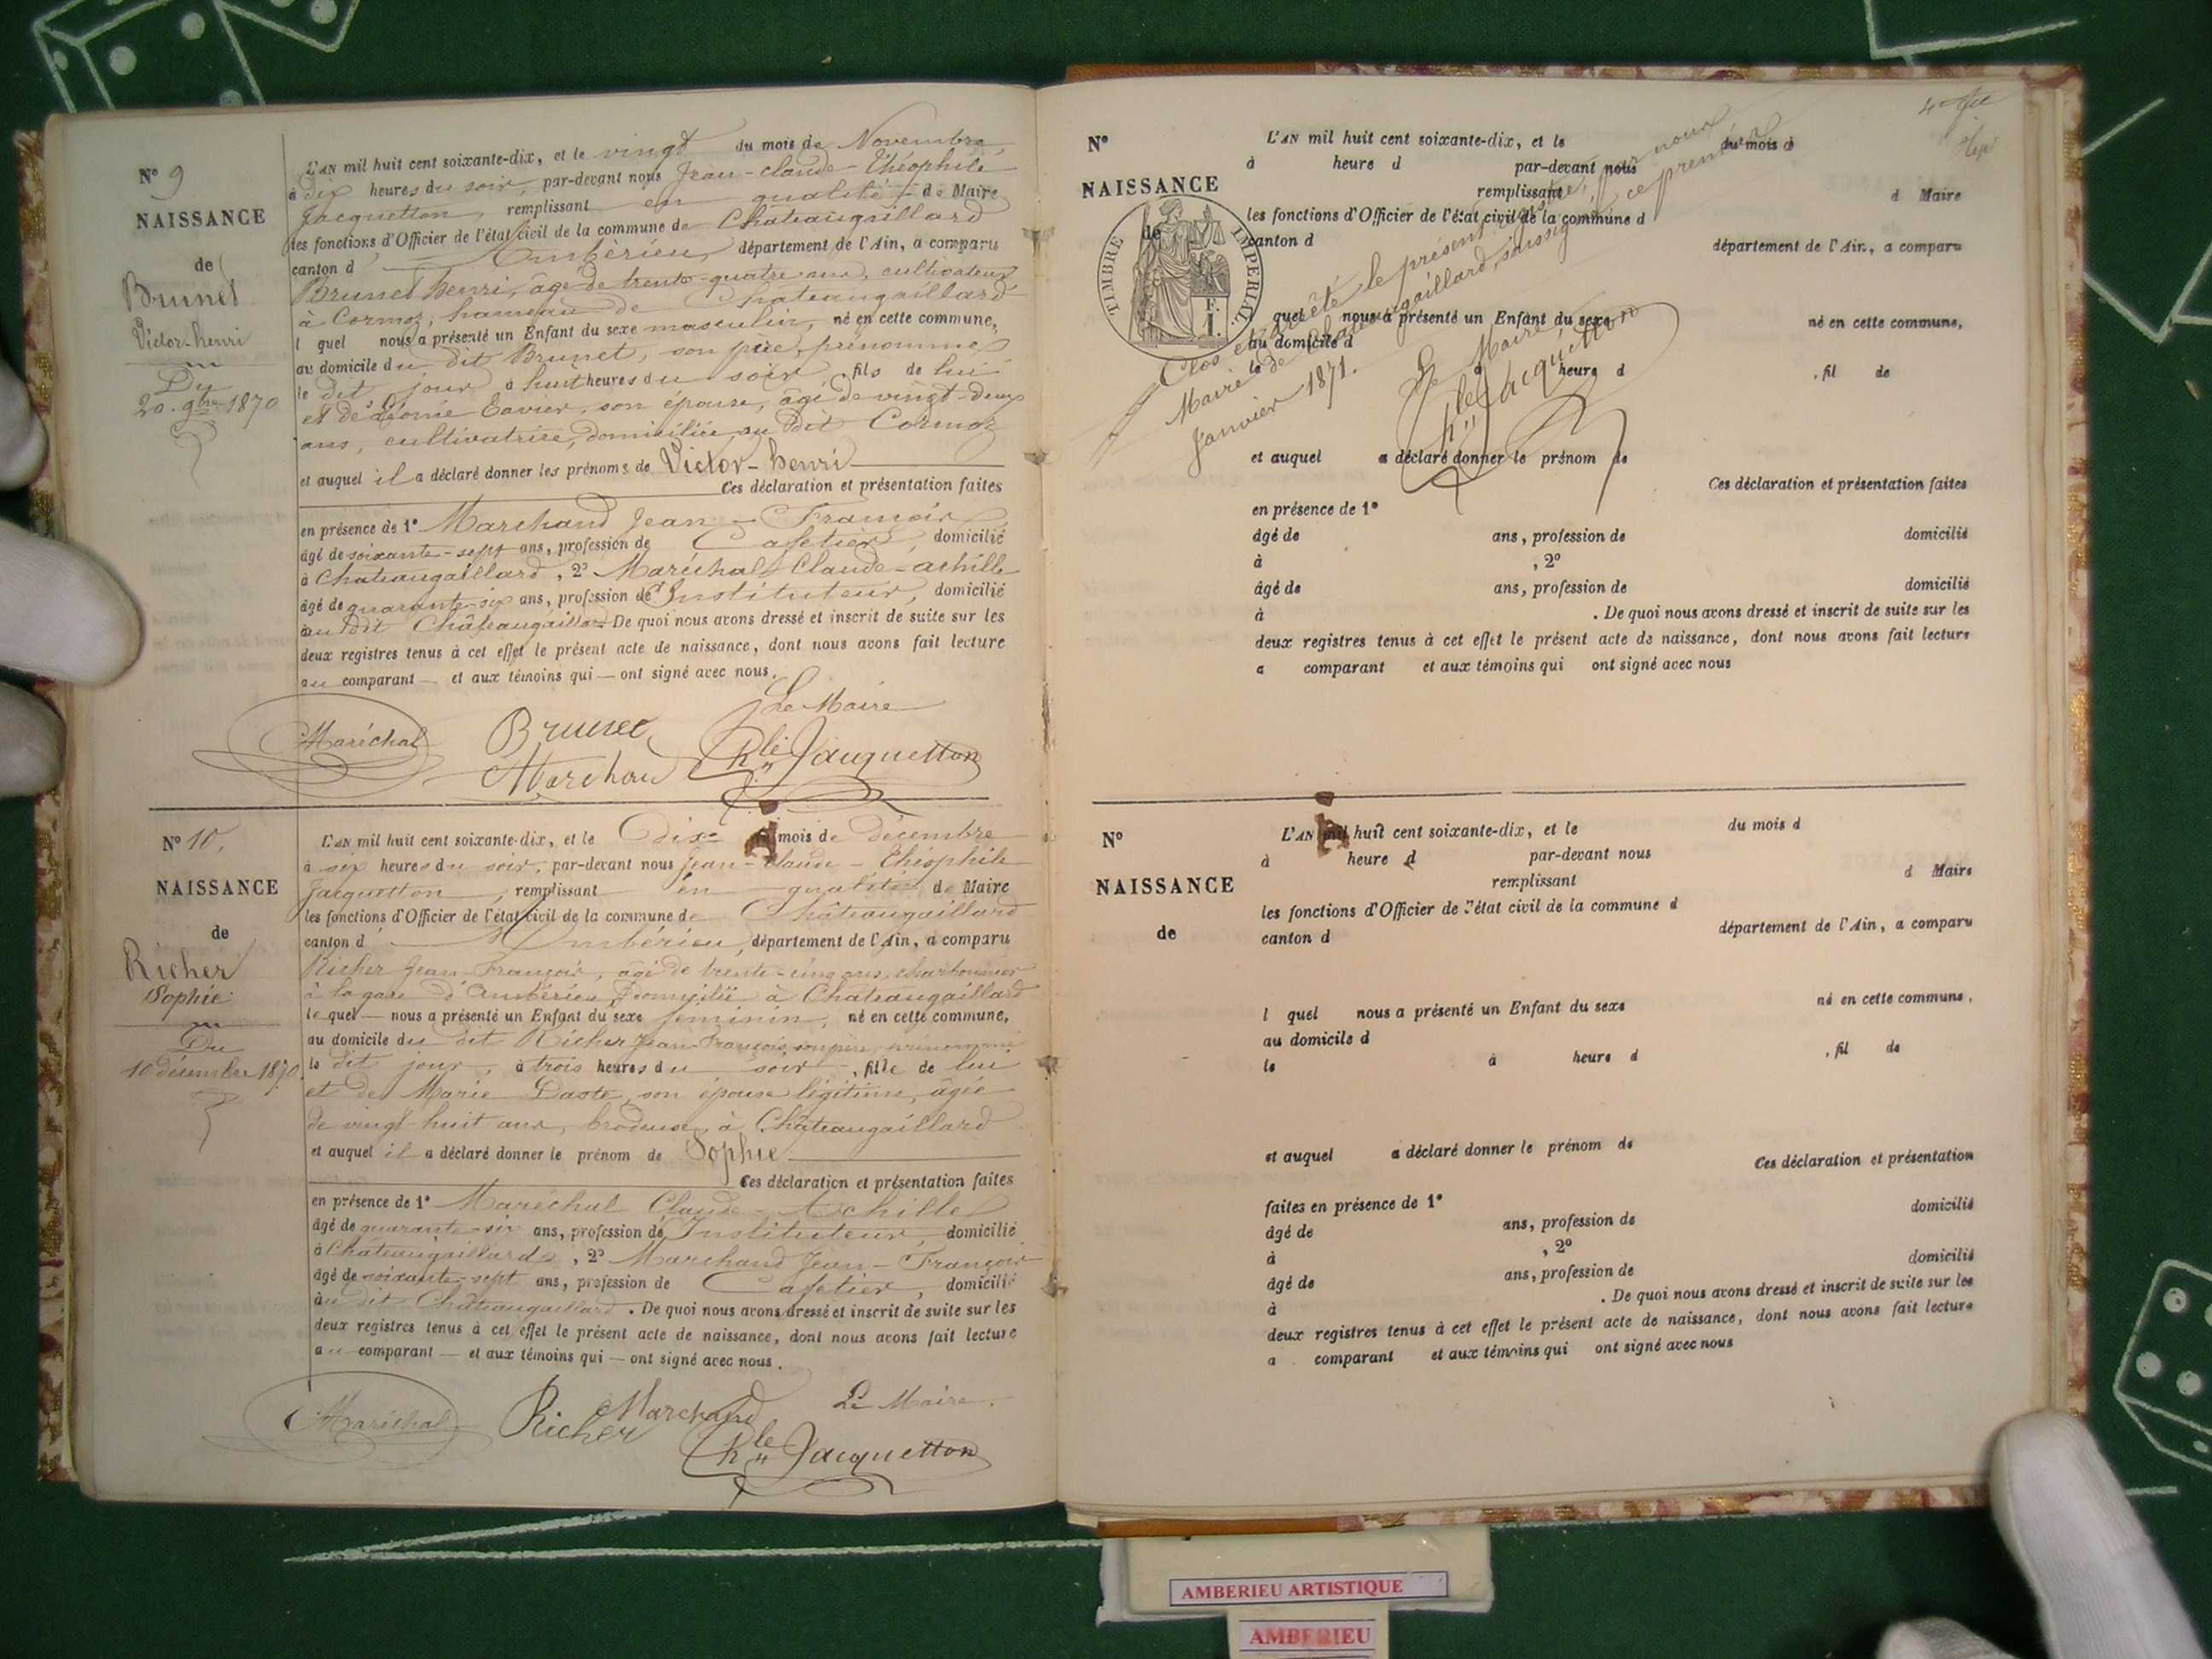 N° 9
NAISSANCE
de
Brunet
Victor-henri
Du
20. 9bre 1870
L'AN mil huit cent soixante-dix, et le vingt du mois de Novembre
à dix heures du soir, par-devant nous Jean-claude-Théophile
Jacquetton, remplissant en qualité de Maire
les fonctions d'Officier de l'état civil de la commune de Chateaugaillard
canton d'Ambérieu, département de l'Ain, a comparu
Brunet henri, âgé de trente-quatre ans, cultivateur
à Cormoz, hameau de Chateaugaillard
lequel nous a présenté un Enfant du sexe masculin, né en cette commune,
au domicile du dit Brunet, son père, prénommé
le dit jour à huit heures du soir, fils de lui
et de son épouse, âgé de vingt-deux
ans, cultivatrice, domiciliée au dit Cormoz
et auquel il a déclaré donner les prénoms de Victor-henri
Ces déclaration et présentation faites
en présence de 1° Marchand Jean-François
âgé de soixante-sept ans, profession de Cafetier, domicilié
à Chateaugaillard, 2° Maréchal Claude-achille
âgé de quarante-six ans, profession d'Instituteur, domicilié
au dit Châteaugaillard De quoi nous avons dressé et inscrit de suite sur les
deux registres tenus à cet effet le présent acte de naissance, dont nous avons fait lecture
au comparant et aux témoins qui ont signé avec nous.
Le Maire
Maréchal Brunet
Marchand Jacquetton
N° 10.
NAISSANCE
de
Richer
Sophie
Du
10 décembre 1870.
L'AN mil huit cent soixante-dix, et le dix du mois de décembre
à six heures du soir, par-devant nous Jean-Claude-Théophile
Jacquetton, remplissant en qualité de Maire
les fonctions d'Officier de l'état civil de la commune de Châteaugaillard
canton d'Ambérieu, département de l'Ain, a comparu
Richer Jean-François, âgé de trente-cinq ans, charbonnier
à la gare d'Ambérieu, domicilié à Chateaugaillard
lequel nous a présenté un Enfant du sexe feminin, né en cette commune,
au domicile du dit Richer Jean-François, son père, prénommé
le dit jour, à trois heures du soir, fille de lui
et de Marie Daste, son épouse légitime, âgée
de vingt-huit ans, brodeuse, à Châteaugaillard
et auquel il a déclaré donner le prénom de Sophie
Ces déclaration et présentation faites
en présence de 1° Maréchal Claude-Achille
âgé de quarante-six ans, profession d'Instituteur, domicilié
à Châteaugaillard, 2° Marchand Jean-François
âgé de soixante-sept ans, profession de Cafetier, domicilié
au dit Châteaugaillard. De quoi nous avons dressé et inscrit de suite sur les
deux registres tenus à cet effet le présent acte de naissance, dont nous avons fait lecture
au comparant et aux témoins qui ont signé avec nous.
Le Maire.
Maréchal Richer Marchand
Jacquetton
N°
NAISSANCE
de
TIMBRE IMPERIAL
L'AN mil huit cent soixante-dix, et le du mois d
à heure d par-devant nous
remplissant d Maire
les fonctions d'Officier de l'état civil de la commune d
canton d département de l'Ain, a comparu
quel nous a présenté un Enfant du sexe né en cette commune,
au domicile d
le à heure d , fil de
Clos et arrêté le présent registre, par nous
Maire de Chateaugaillard, soussigné, ce premier
Janvier 1871.
Le Maire
Jacquetton
et auquel a déclaré donner le prénom de
Ces déclaration et présentation faites
en présence de 1°
âgé de ans, profession de domicilié
à , 2°
âgé de ans, profession de domicilié
à . De quoi nous avons dressé et inscrit de suite sur les
deux registres tenus à cet effet le présent acte de naissance, dont nous avons fait lecture
a comparant et aux témoins qui ont signé avec nous
N°
NAISSANCE
de
L'AN mil huit cent soixante-dix, et le du mois d
à heure d par-devant nous
remplissant d Maire
les fonctions d'Officier de l'état civil de la commune d
canton d département de l'Ain, a comparu
l quel nous a présenté un Enfant du sexe né en cette commune,
au domicile d
le à heure d , fil de
et auquel a déclaré donner le prénom de
Ces déclaration et présentation
faites en présence de 1° domicilié
âgé de ans, profession de
à , 2° domicilié
âgé de ans, profession de
à . De quoi nous avons dressé et inscrit de suite sur les
deux registres tenus à cet effet le présent acte de naissance, dont nous avons fait lecture
a comparant et aux témoins qui ont signé avec nous
AMBERIEU ARTISTIQUE
AMBERIEU